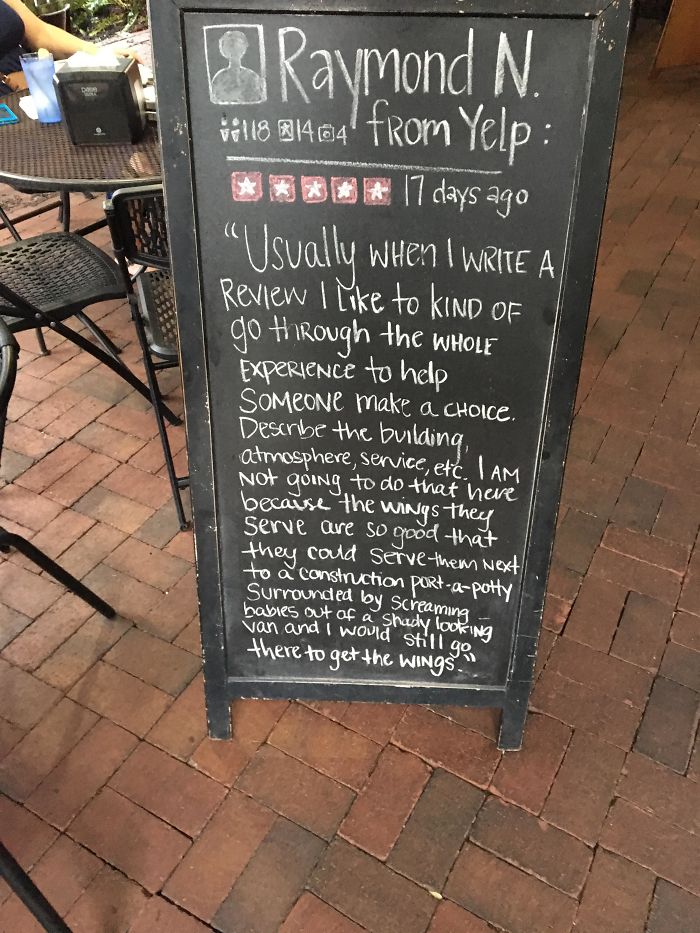 Raymond N.
118 14 4 from Yelp:
17 days ago
"Usually when I write a
Review I like to kind of
go through the whole
experience to help
someone make a choice.
Describe the building,
atmosphere, service, etc. I am
not going to do that here
because the wings they
serve are so good that
they could serve them next
to a construction port-a-potty
surrounded by screaming
babies out of a shady looking
van and I would still go
there to get the wings."